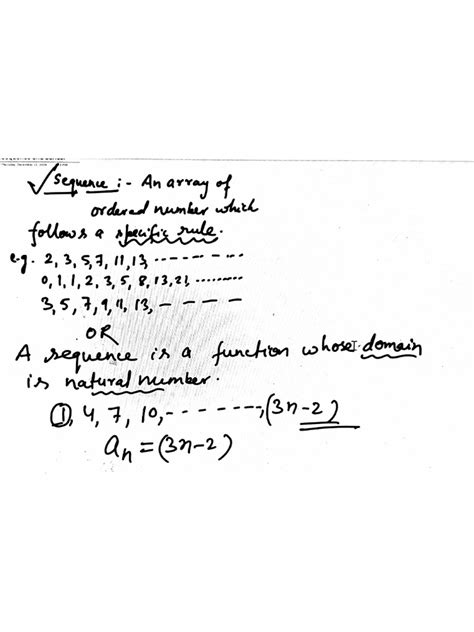 ✓ Sequence :- An array of
ordered number which
follows a specific rule.
e.g. 2, 3, 5, 7, 11, 13, --------
0, 1, 1, 2, 3, 5, 8, 13, 21, ........
3, 5, 7, 9, 11, 13, - - - -
OR
A sequence is a function whose domain
is natural number.
1, 4, 7, 10, - - - - - - -, (3n-2)
an = (3n-2)